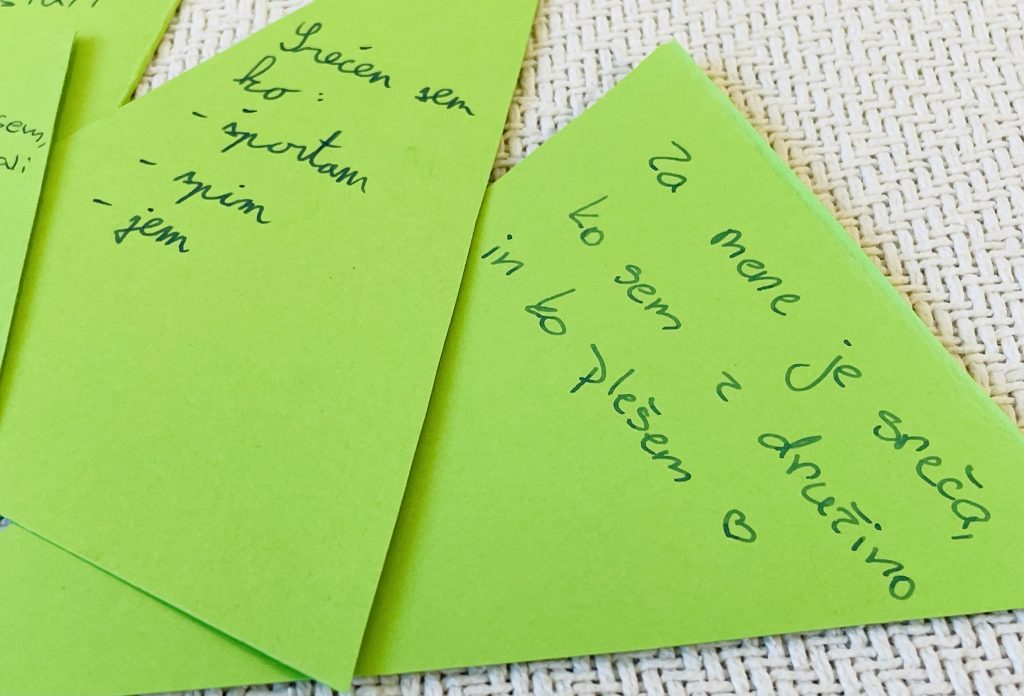 sem,
Srečen sem
ko :
- športam
- spim
- jem
Za mene je sreča,
ko sem z družino
in ko plešem ♡